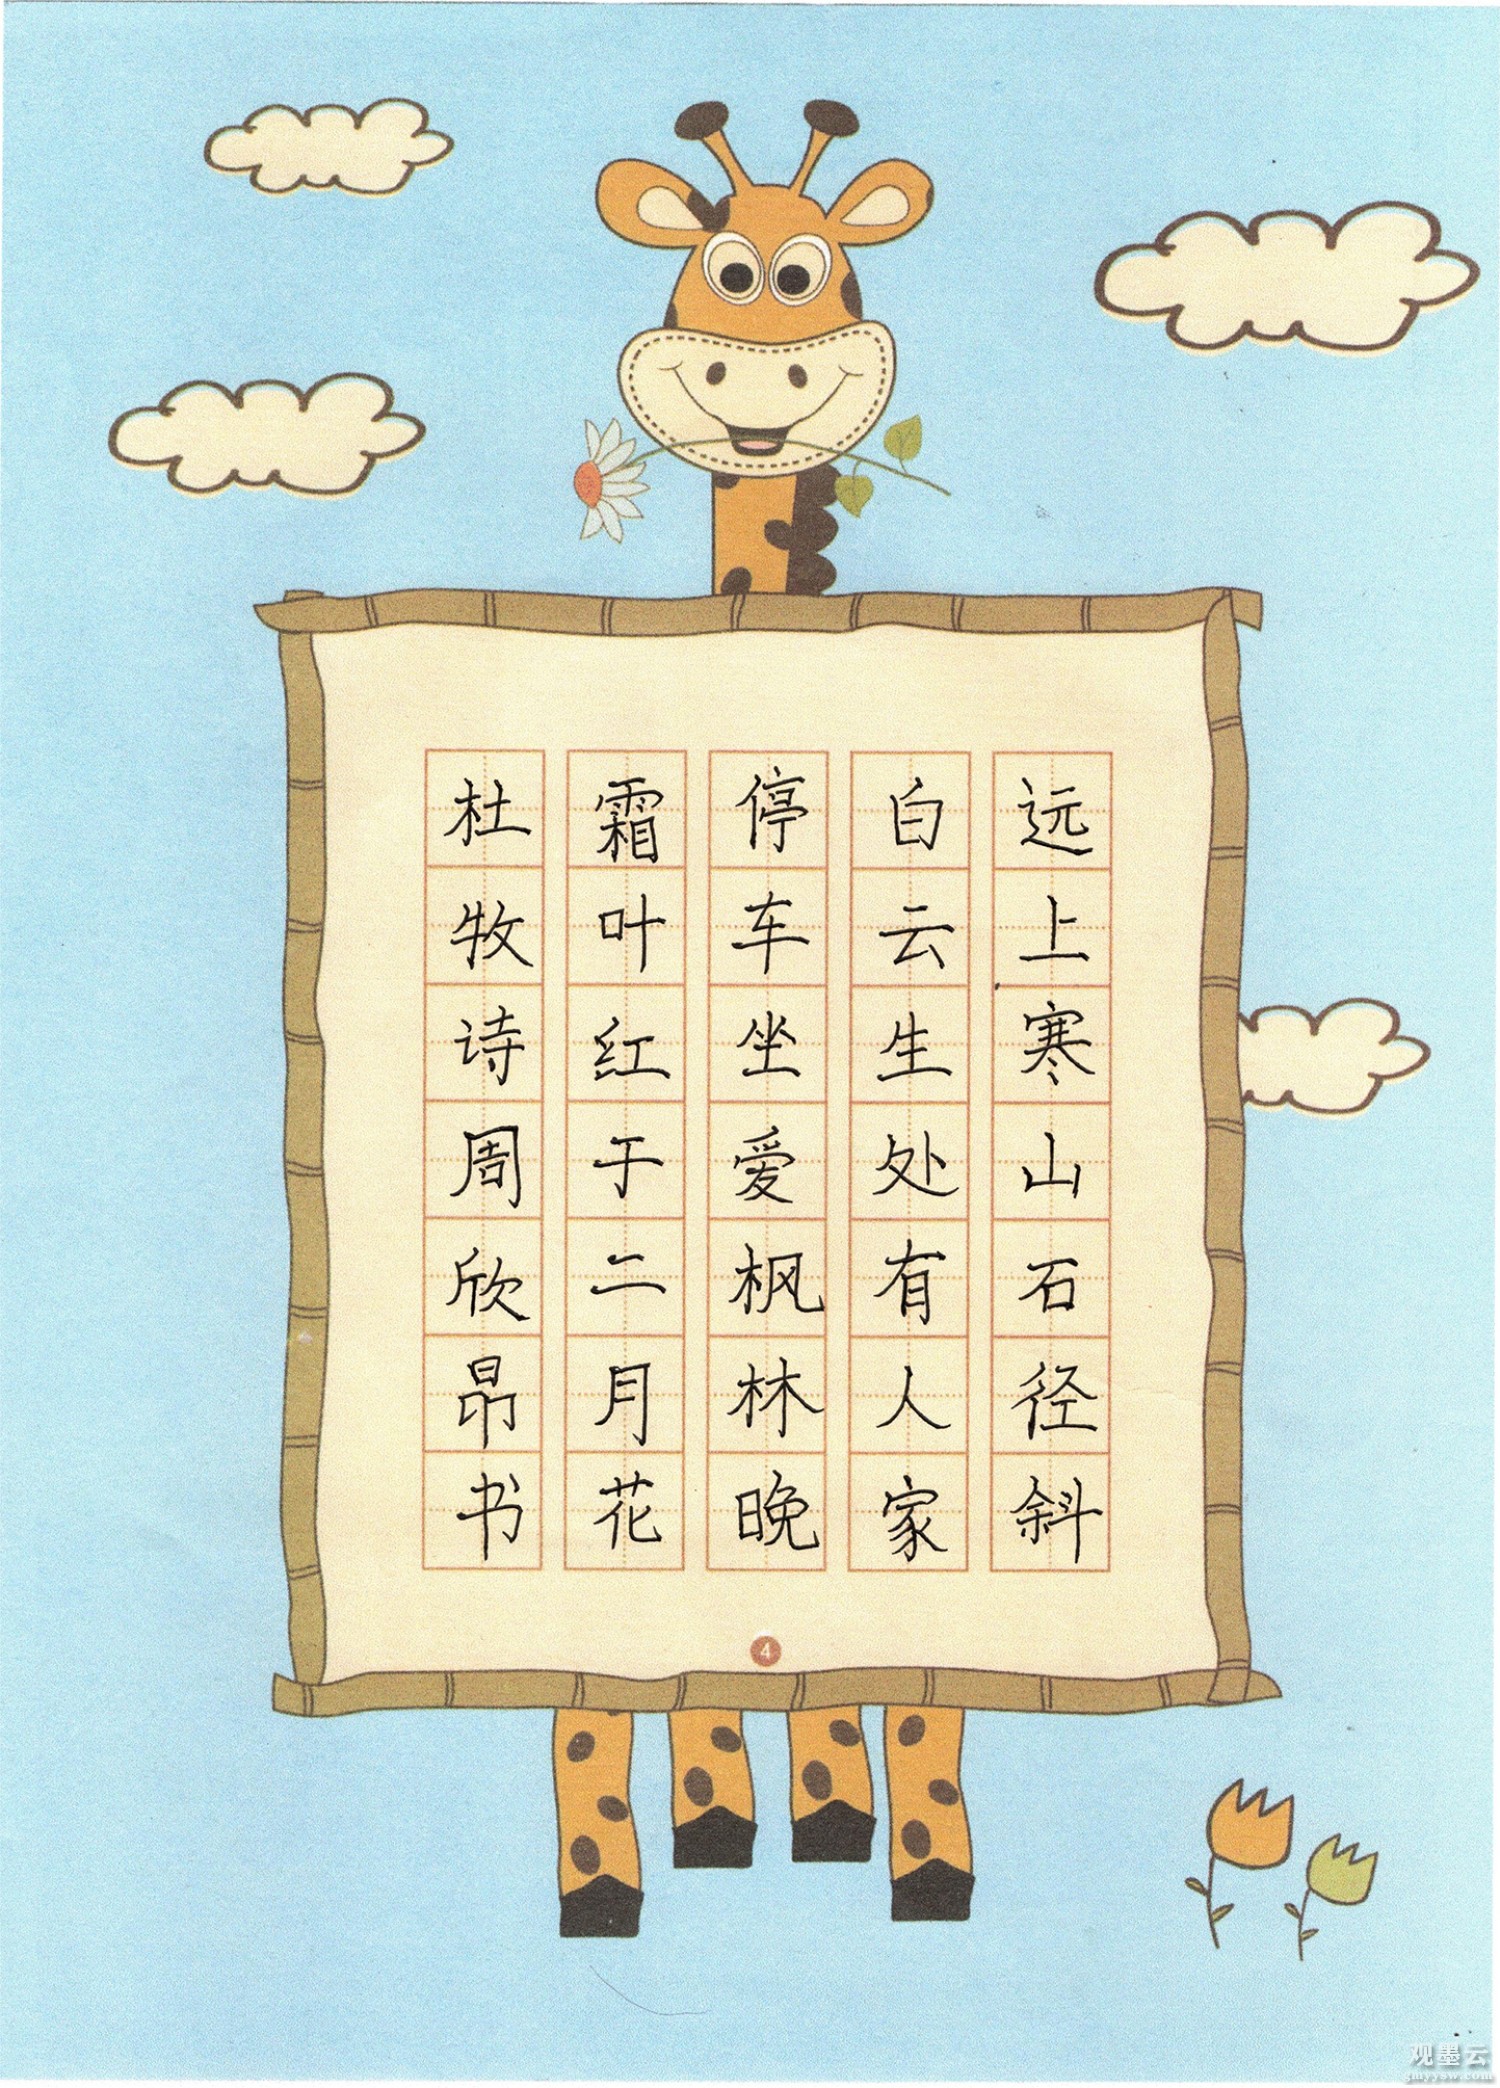 远上寒山石径斜
白云生处有人家
停车坐爱枫林晚
霜叶红于二月花
杜牧诗周欣昂书
4
观墨云
gmyysw.com